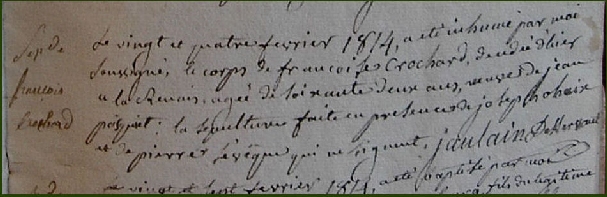 Sep. de
francoise
Crochard
Le vingt et quatre fevrier 1814, a eté inhumé par moi
soussigné, le corps de francoise Crochard, decedée d'hier
a la agée de soixante deux ans, veuve de jean
: la sepulture faite en presence de joseph
et de pierre Levêque qui ne signent, jaulain
Le vingt et sept fevrier 1814, a eté baptisé par moi
fils du legitime